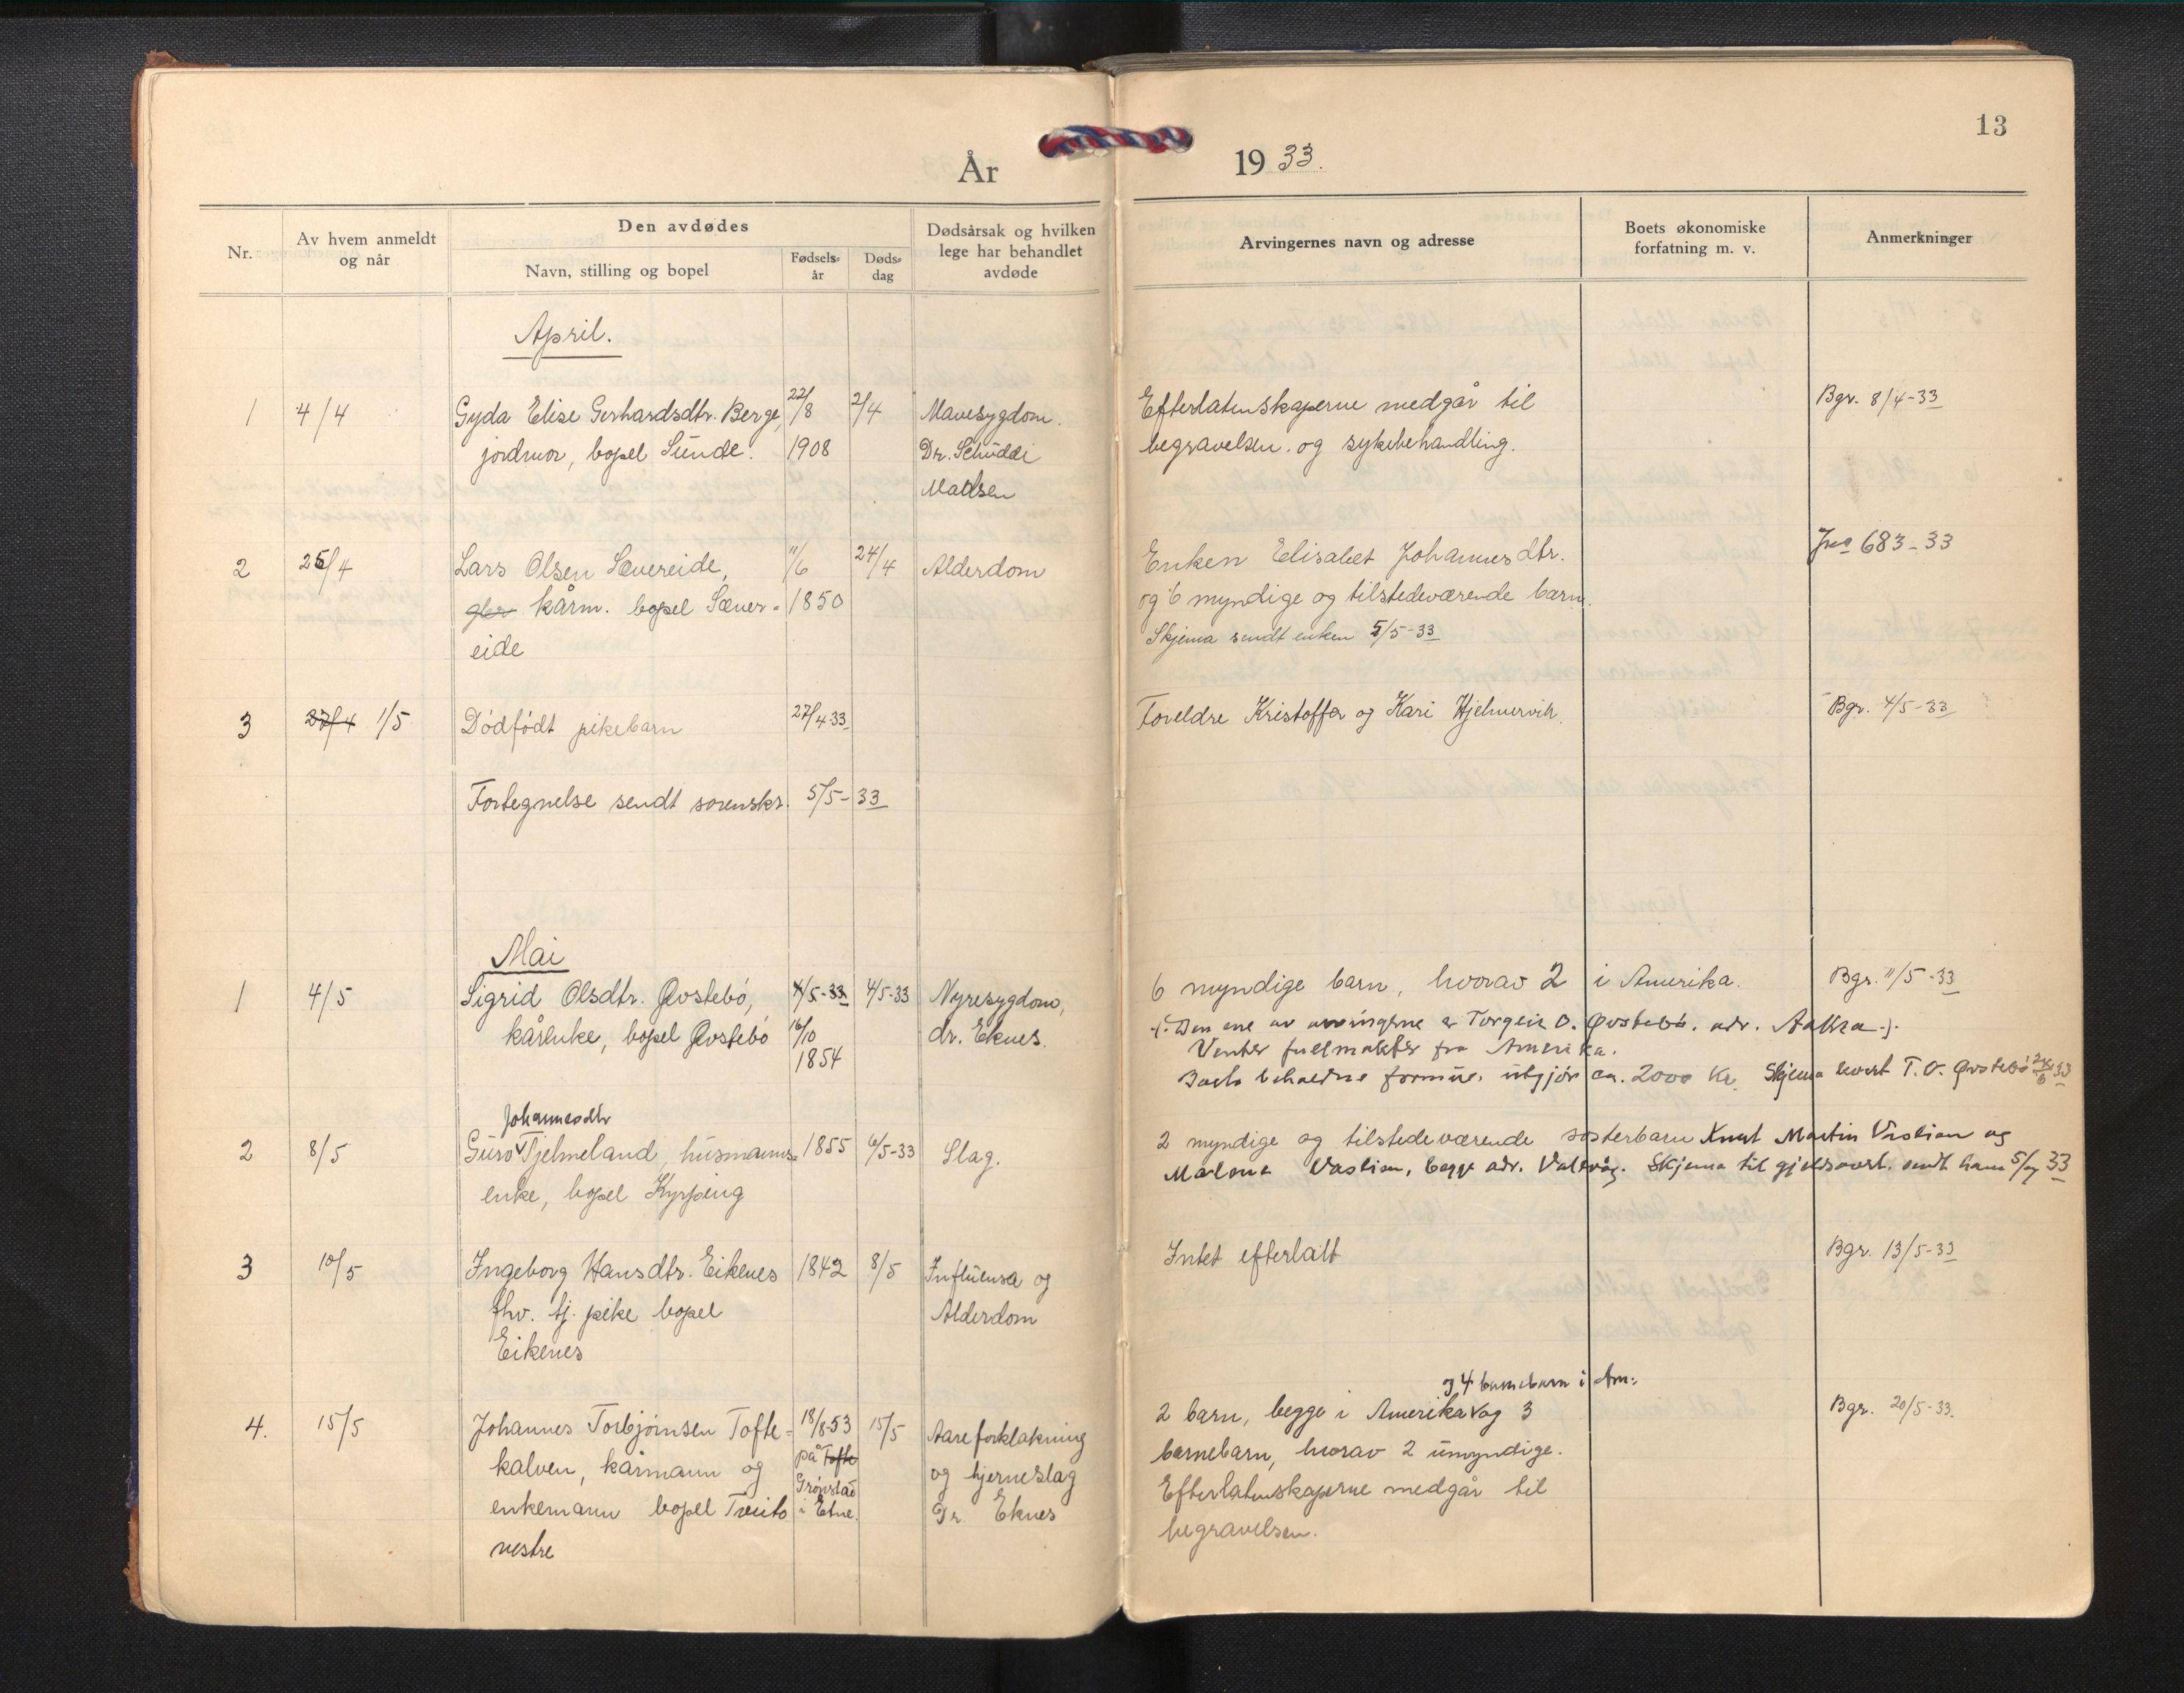 13
År 1933.
Nr.
Av hvem anmeldt og når
Den avdødes
Navn, stilling og bopel
Fødselsår
Dødsdag
Dødsårsak og hvilken lege har behandlet avdøde
Arvingernes navn og adresse
Boets økonomiske forfatning m. v.
Anmerkninger
April.
1 4/4 Gyda Elise Gerhardsdtr. Berge, 22/8 2/4 Mavesygdom. Efterlatenskaperne medgår til Bgr. 8/4-33
jordmor, bopel Sunde. 1908 Dr. Schüddi begravelsen. og sykebehandling.
Madsen
2 25/4 Lars Olsen Sævereide, 11/6 24/4 Alderdom Enken Elisabet Johannesdtr. Jno 683-33
gbr kårm. bopel Sæver- 1850 og 6 myndige og tilstedeværende barn.
eide Skjema sendt enken 5/5-33
3 27/4 1/5 Dødfødt pikebarn 27/4-33 Foreldre Kristoffer og Kari Hjelmervik. Bgr. 4/5-33
Fortegnelse sendt sorenskr. 5/5-33
Mai
1 4/5 Sigrid Olsdtr. Øvstebø, 4/5-33 4/5-33 Nyresygdom, 6 myndige barn, hvorav 2 i Amerika. Bgr. 11/5-33
kårenke, bopel Øvstebø 16/10 dr. Eknes. -(: Den ene av arvingerne er Torgeir O. Øvstebø. adr. Aakra-).
1854 Venter fullmakter fra Amerika.
Boets beholdne formue utgjør ca. 2000 Kr. Skjema levert T. O. Øvstebø 24/6 33
Johannesdtr
2 8/5 Guro Tjelmeland, husmanns- 1855 6/5-33 Slag. 2 myndige og tilstedeværende søsterbarn Knut Martin Vaslien og
enke, bopel Kyrping Malene Vaslien, begge adr. Valevåg. Skjema til gjeldsovert. sendt ham 5/7 33
3 10/5 Ingeborg Hansdtr. Eikenes 1842 8/5 Influensa og Intet efterlatt Bgr. 13/5-33
fhv. tj. pike bopel Alderdom
Eikenes
og 4 barnebarn i Am:
4. 15/5 Johannes Torbjørnsen Tofte- 18/8-53 15/5 Aareforkalkning 2 barn, begge i Amerika og 3 Bgr. 20/5-33.
kalven, kårmann og på Tofte og hjerneslag barnebarn, hvorav 2 umyndige.
enkemann bopel Tveito Grønstad i Etne. Dr. Eknes Efterlatenskaperne medgår til
vestre begravelsen.